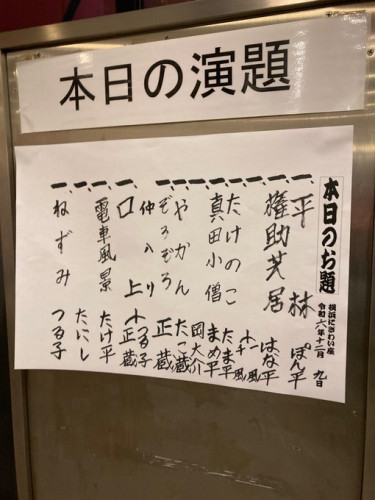 本日の演題
本日のお題
横浜にぎわい座
令和六年十二月 九日
一、平林 ぽん平
一、権助芝居 はな平
一、たけのこ たま平
一、真田小僧 まめ平
一、 岡大介
一、やかん たこ蔵
一、ぞろぞろ 正蔵
仲入り
一、口上 つる子 正蔵
一、電車風景 たけ平
一、 たにし
一、ねずみ つる子